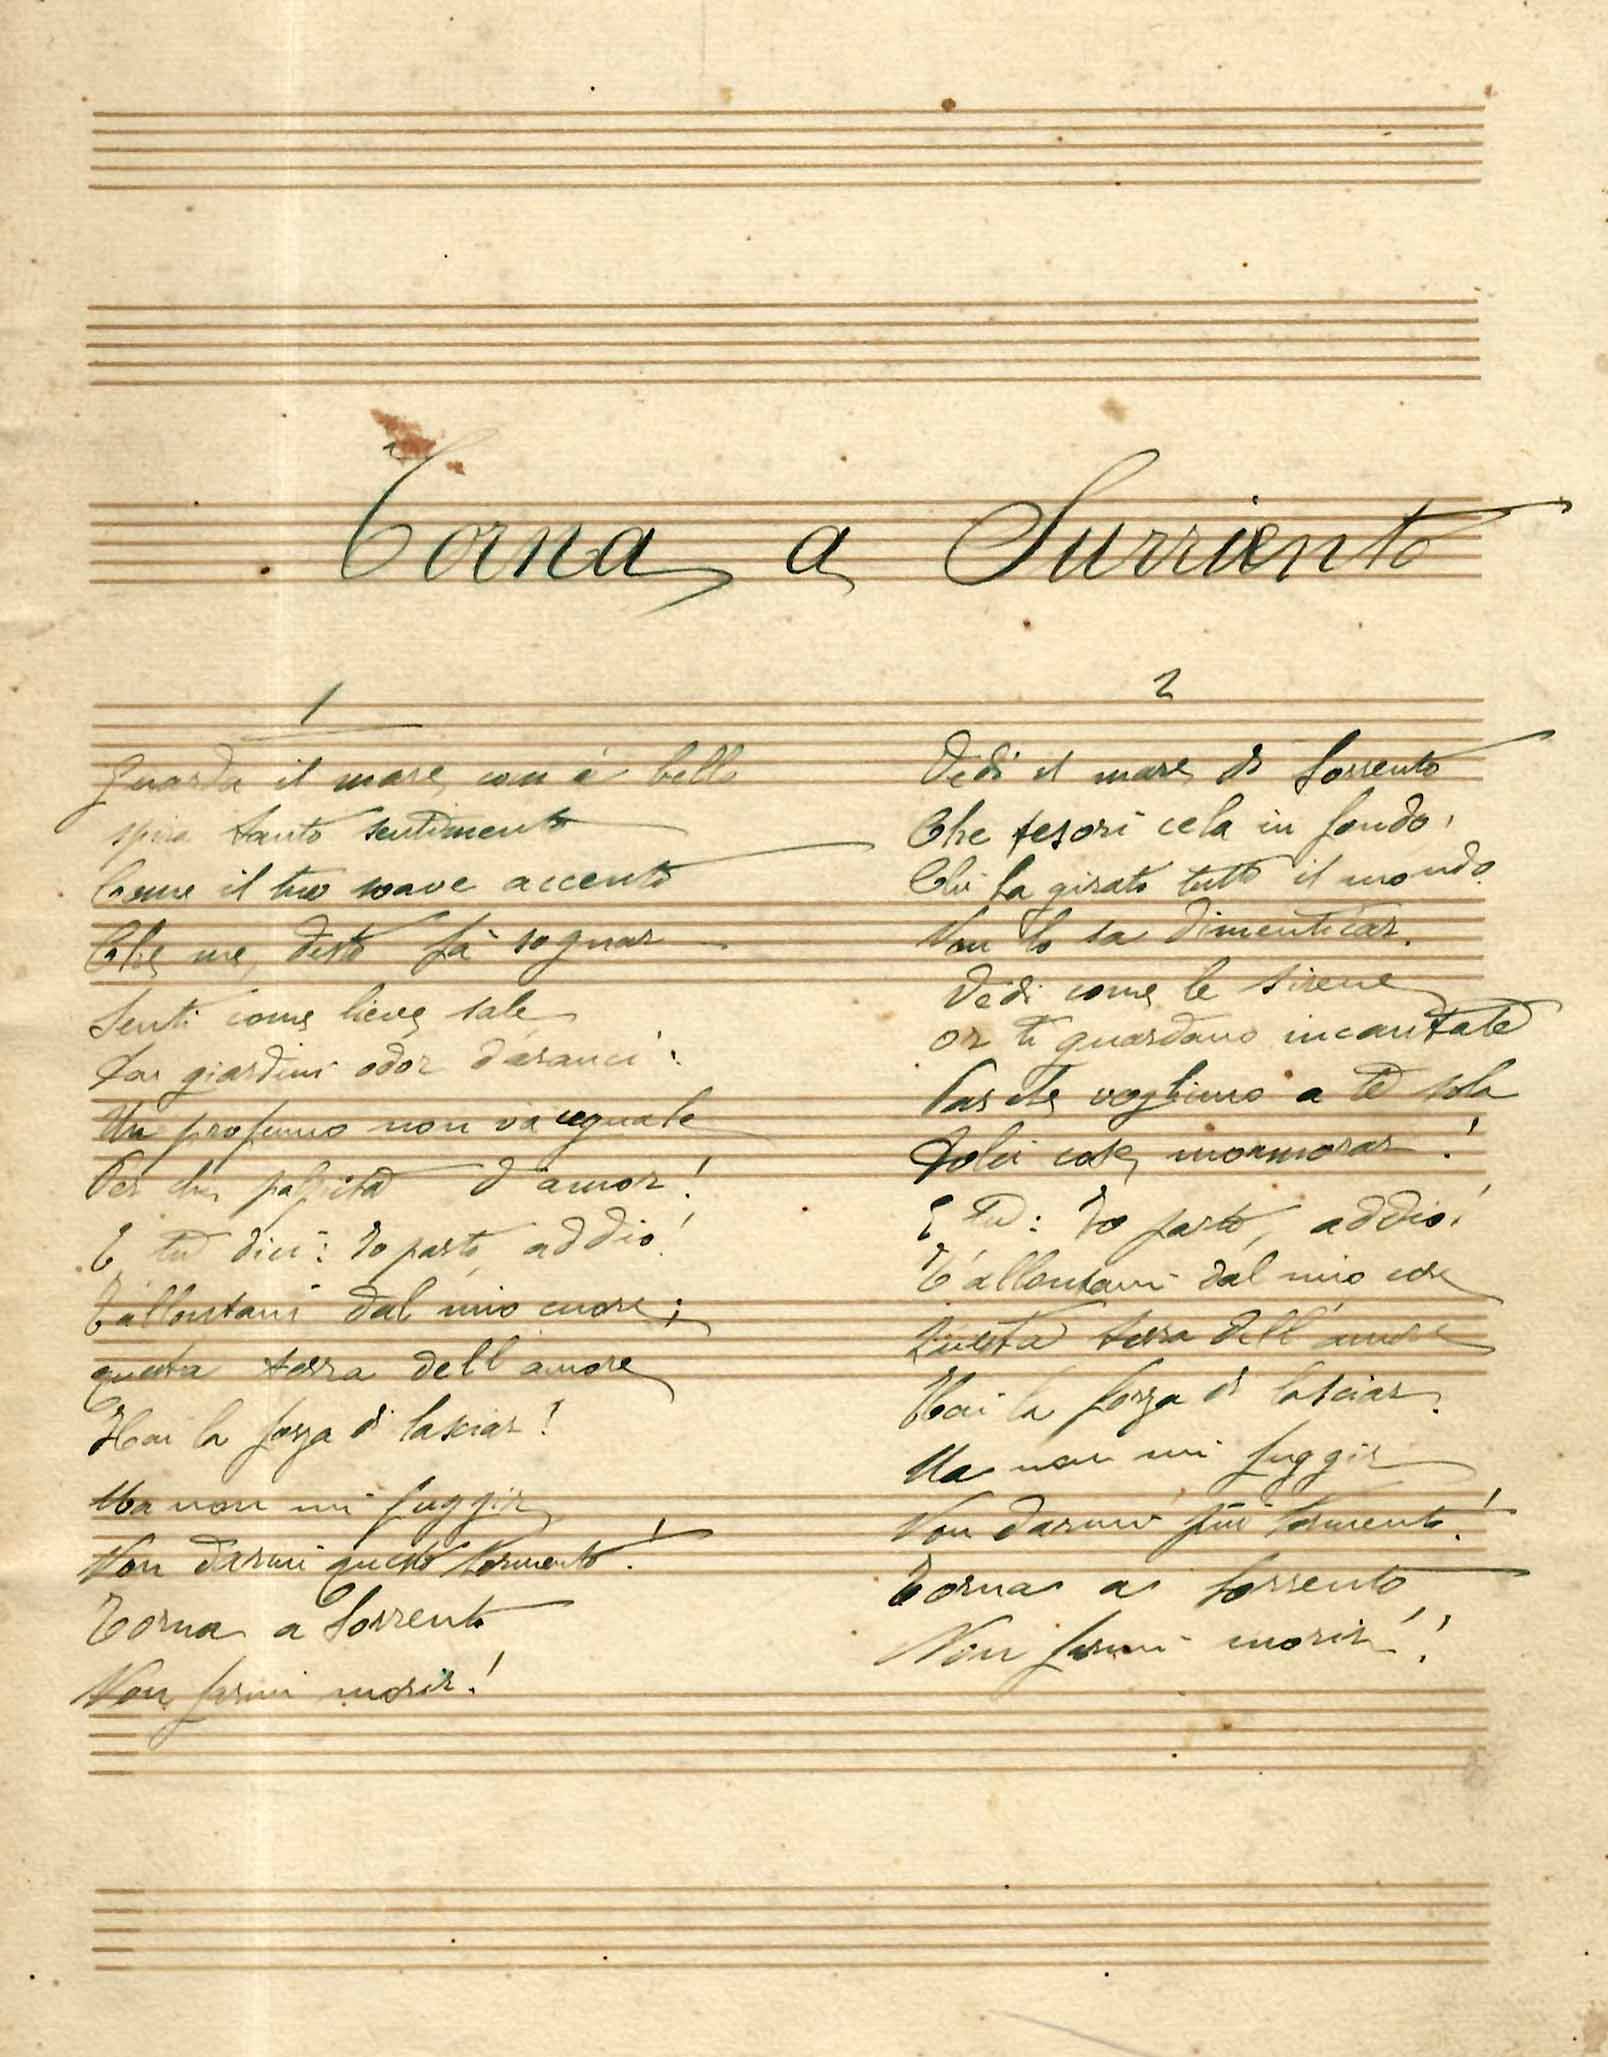 Torna a Surriento
1
Guarda il mare com'è bello
spira tanto sentimento
Come il tuo soave accento
Che me, desto fa sognar
Senti come lieve sale
Dai giardini odor d'aranci:
Un profumo non v'a eguale
Per chi palpita d'amor!
E tu dici: Io parto, addio!
T'allontani dal mio cuore;
questa terra dell'amore
Hai la forza di lasciar!
Ma non mi fuggir
Non darmi questo tormento!
Torna a Sorrento
Non farmi morir!
2
Vedi il mare di Sorrento
Che tesori cela in fondo,
Chi ha girato tutto il mondo
Non lo sa dimenticar.
Vedi come le sirene
or ti guardano incantate
Par che vogliono a te sola
Dolci cose, mormorar!
E tu: Io parto, addio!
T'allontani dal mio core
Questa terra dell'amore
Hai la forza di lasciar.
Ma non mi fuggir
Non darmi più tormento!
Torna a Sorrento
Non farmi morir!